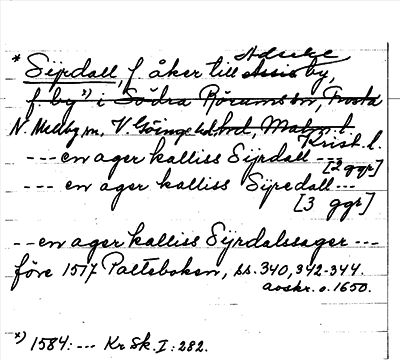 Adseke
* Syrdall, f åker till Assis by,
f by x) i Södra Rörums sn, Frosta
N. Mellby sn, V. Göinge hd hrd, Malm. l.
Krist. l.
--- en ager kalliss Syrdall ---
[2 ggr]
--- en ager kalliss Syredall ---
[3 ggr]
-- en ager kalliss Syrdalssager ---
före 1517 Palteboken, ss. 340, 342-344.
avskr. o. 1650.
x) 1584: --- Kr Sk. I: 282.